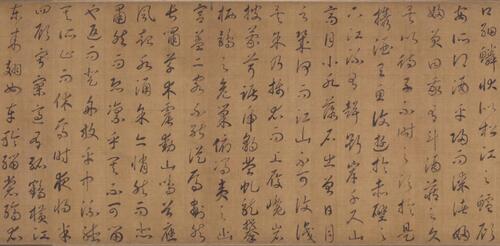 口細鱗狀如松江之鱸顧
安所得酒乎歸而謀諸婦
婦曰我有斗酒藏之久
矣以待子不時之須於是
攜酒與魚復遊於赤壁之
下江流有聲斷岸千尺山
高月小水落石出曾日月
之幾何而江山不可復識
矣予乃攝衣而上履巉岩
披蒙茸踞虎豹登虬龍攀
栖鶻之危巢俯馮夷之幽
宮蓋二客不能從焉劃然
長嘯草木震動山鳴谷應
風起水涌余亦悄然而悲
肅然而恐凜乎其不可留
也返而登舟放乎中流聽
其所止而休焉時夜將半
四顧寂寥適有孤鶴橫江
東來翅如車輪玄裳縞衣